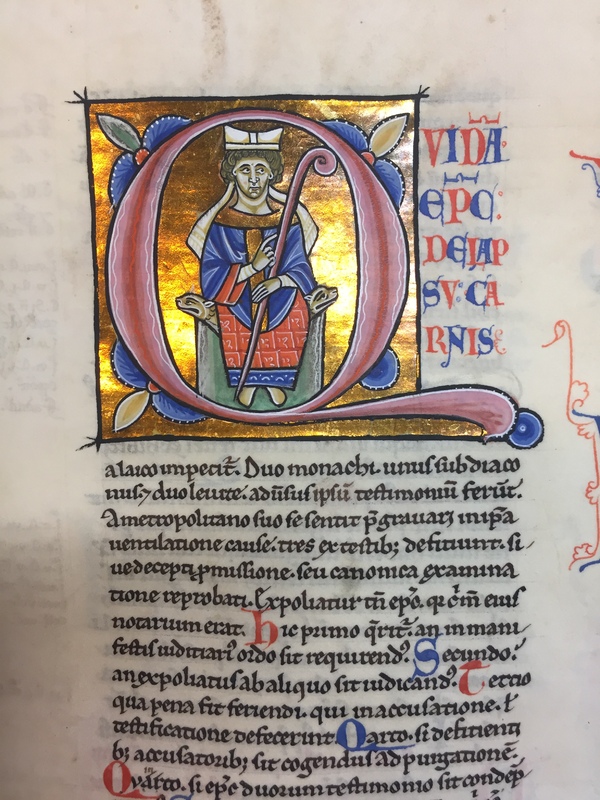 QVIDĀ
EP̄C:
DE LAP
SV: CA
RNIS E
a laico impecit̄. Duo monachi. unus subdiaco
nus, ⁊ duo leuite. aduersus ipsū testimoniū ferūt.
A metropolitano suo se sentit p̄grauari in ip̄a
uentilatione cause. tres ex testib; defitiunt. si
ue decepti ꝓmissione. seu canonica examina
tione reprobati. Expoliatur tn̄ ep̄c. qr̄ cm̄ eius
notarium erat. Hic primo q̄rit̄. an in mani
festis iuditiariꝰ ordo sit requirendꝰ. Secundo.
an expoliatus ab aliquo sit iudicandꝰ. Tertio
qua pena sit feriendi. qui in accusatione. ł
testificatione defecerint. Qarto. si defitienti
b; accusatorib; sit cogendus ad purgationē.
si ep̄c duorum testimonio sit condēp